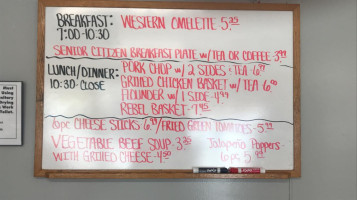 BREAKFAST: WESTERN OMELETTE 5.35
7:00-10:30
SENIOR CITIZEN BREAKFAST PLATE w/TEA OR COFFEE-3.99
LUNCH/DINNER: PORK CHOP w/ 2 SIDES + TEA
10:30-CLOSE GRILLED CHICKEN BASKET w/ TEA
FLOUNDER w/ 1 SIDE-4.99
REBEL BASKET-7.95
6pc CHEESE STICKS /FRIED GREEN TOMATOES-5.99
VEGETABLE BEEF SOUP-3.35 Jalapeño Poppers-
WITH GRILLED CHEESE-4.50 6pc 5.99